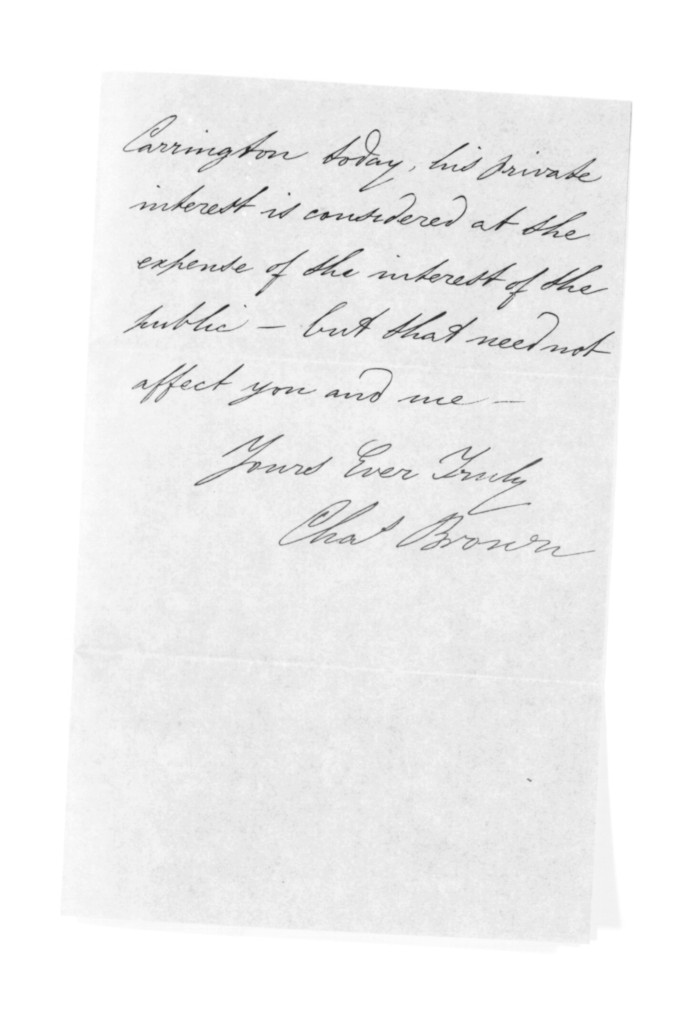 Carrington today, his private
interest is considered at the
expense of the interest of the
public – but that need not
affect you and me –
Yours Ever Truly
Chas Brown